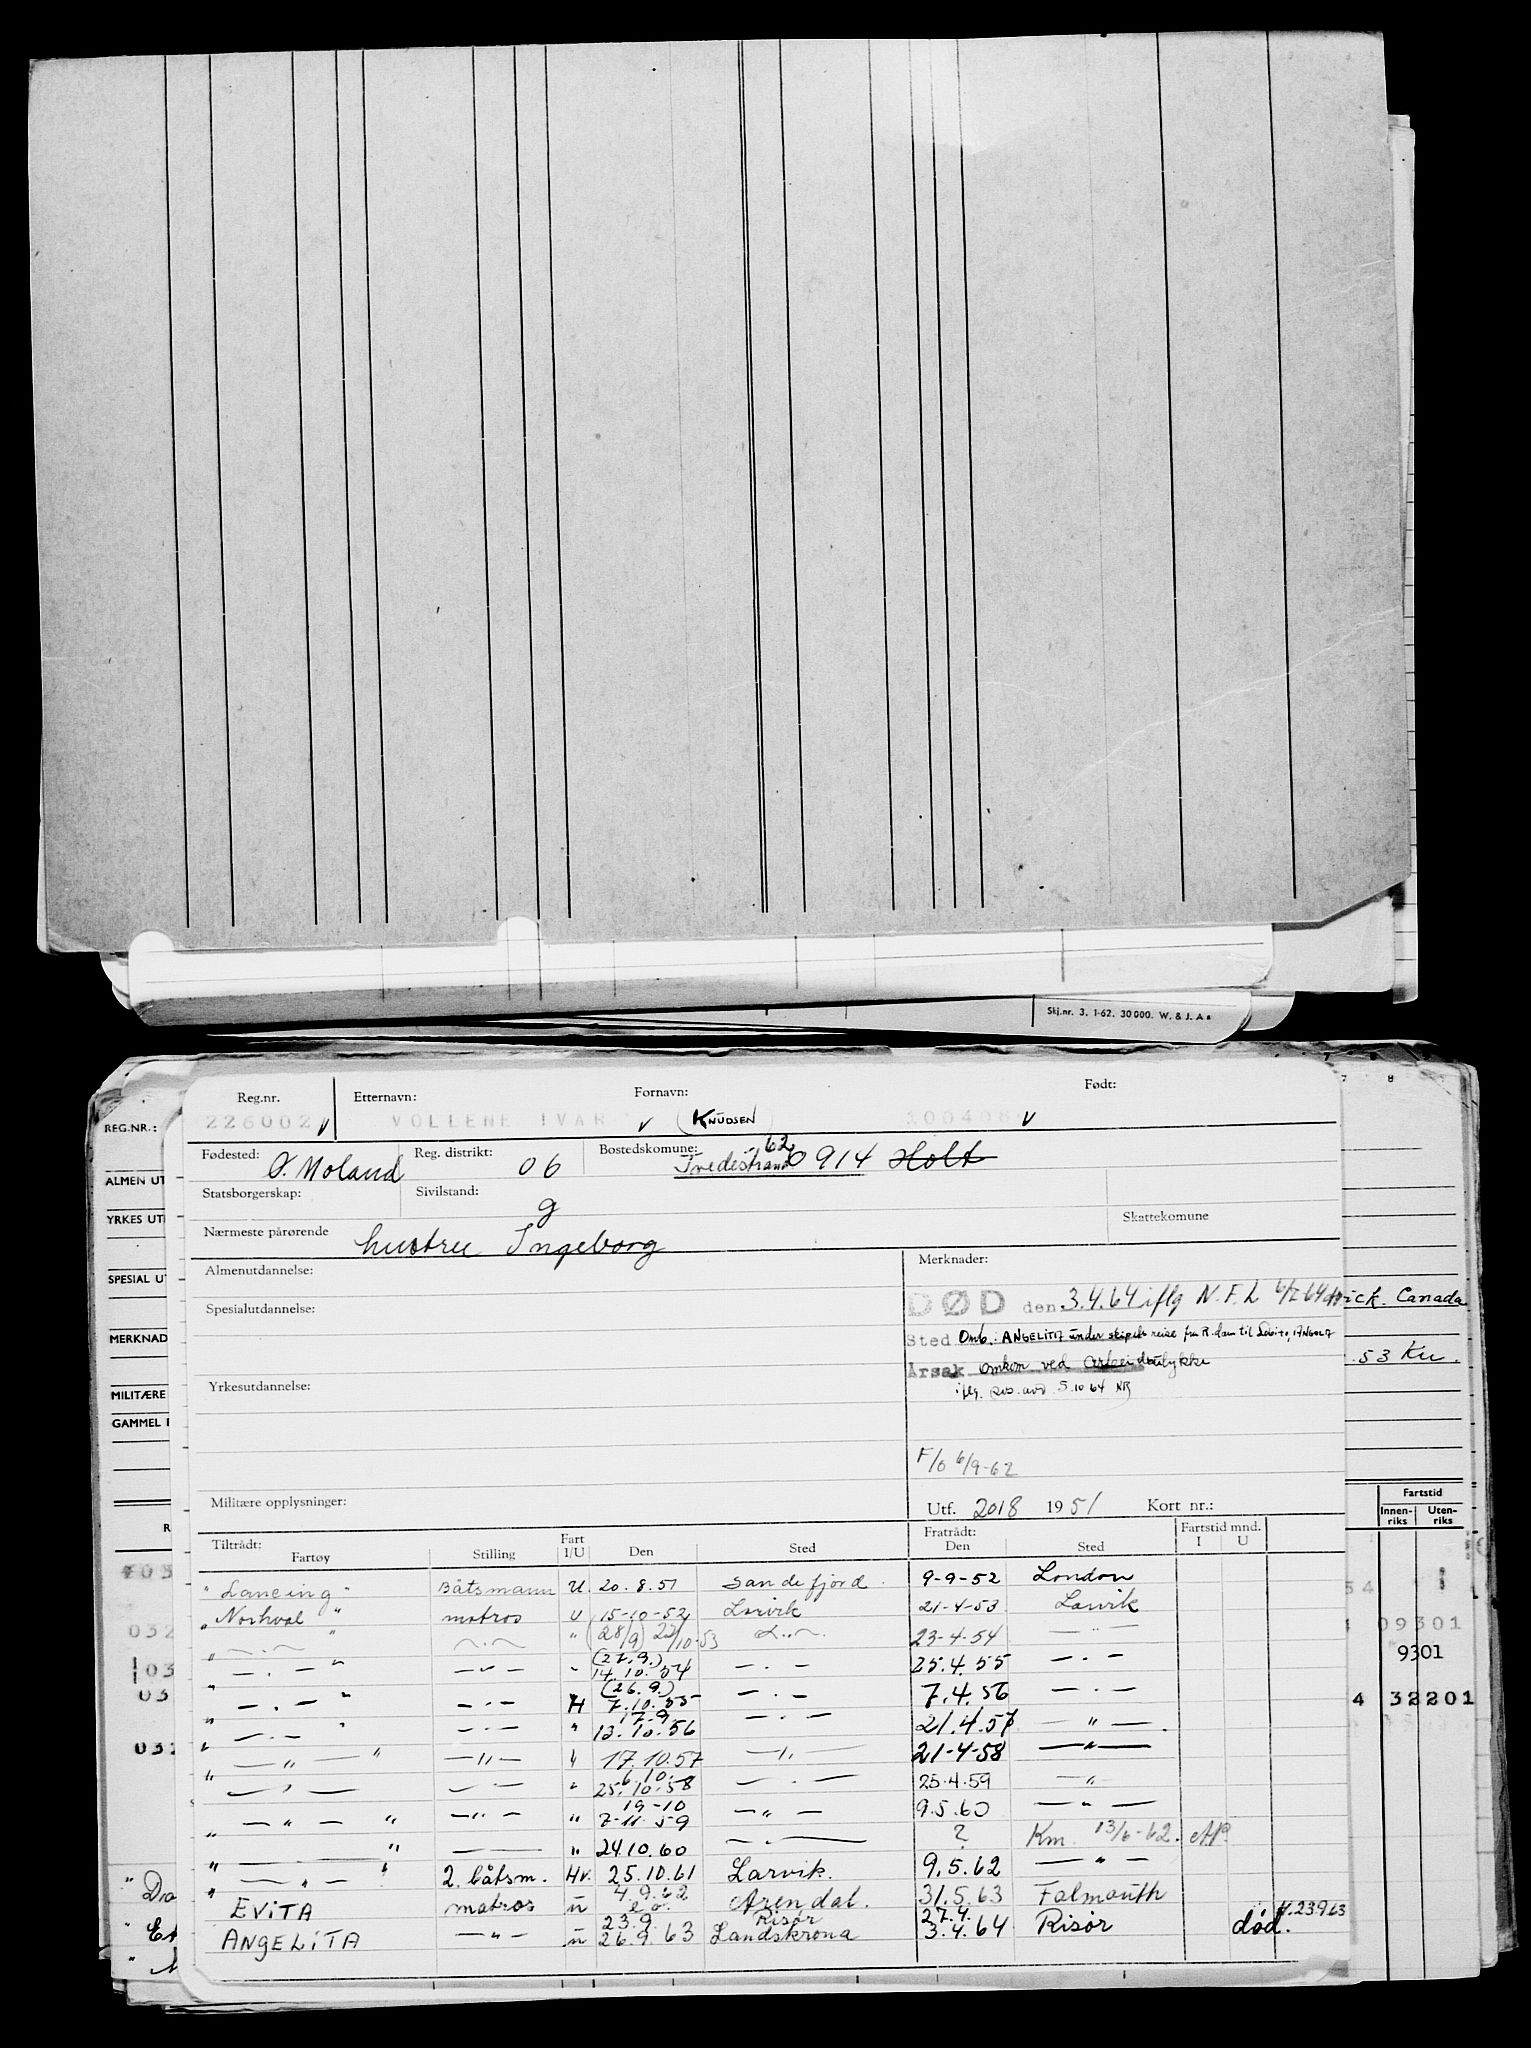 Skj.nr. 3. 1-62. 30000. W. & J. A s
7 8
REG.NR.:
ALMEN UT
YRKES UT
SPESIAL UT
MERKNAD
MILITÆRE
GAMMEL
Reg.nr. Etternavn: Fornavn: Født:
226002 VOLLENE IVAR (KNUDSEN) 100408
Fødested: Ø. Moland Reg. distrikt: 06 Bostedskomune: Tvedestrand 62 0914 Holt
Statsborgerskap: Sivilstand: g
Nærmeste pårørende hustru Ingeborg Skattekomune
Almenutdannelse: Merknader:
Spesialutdannelse: DØD den 3.4.64 iflg N.F.L
Sted Omb. ANGELITA under skipets reise fra R.dam til Lobito, ANGOLA
Årsak omkom ved arbeidsulykke
Yrkesutdannelse: iflg. 5.10 64
F/o 6/9-62
Militære opplysninger: Utf. 2018 1951 Kort nr.:
Tiltrådt: Fartøy Stilling Fart I/U Den Sted Fratrådt: Den Sted Fartstid mnd. I U
" Lancing " Båtsmann U. 20.8.51 Sandefjord 9-9-52 London
" Norhval " matros U 15-10-52 Larvik 21-4-53 Larvik
" — . — " — . — " (28/9) 22/10-53 — " — 23-4-54 — " —
" — . — " — " — " (27.9.) 14.10.54 — . — 25.4.55 — . —
" — . — " — . — H (26.9.) 7.10.55 — . — 7.4.56 — . —
" — . — " — . — " 17.9. 13.10.56 — . — 21.4.57 — " —
" — " — " — " — " 17.10.57 — " — 21-4-58 — " —
" — " — — " — " 6.10. 25.10.58 — . — 25.4.59 — " —
" — " — " — " — " 19-10 7-11-59 — " — 9.5.60 — " —
" — — " — — " 24.10.60 — . — ? Km. 13/6-62.
" — " — " 2. båtsm. Hv. 25.10.61 Larvik. 9.5.62 — " —
EVITA matros u 4.9.62 Arendal. 31.5.63 Falmouth
ANGELITA — " — u 23.9. 26.9.63 Risør Landskrona 27.4. 3.4.64 Risør død. 23963
Canada
.53 Ku.
Fartstid
Innen-riks Uten-riks
54
09301
9301
4 32201
032
03
03